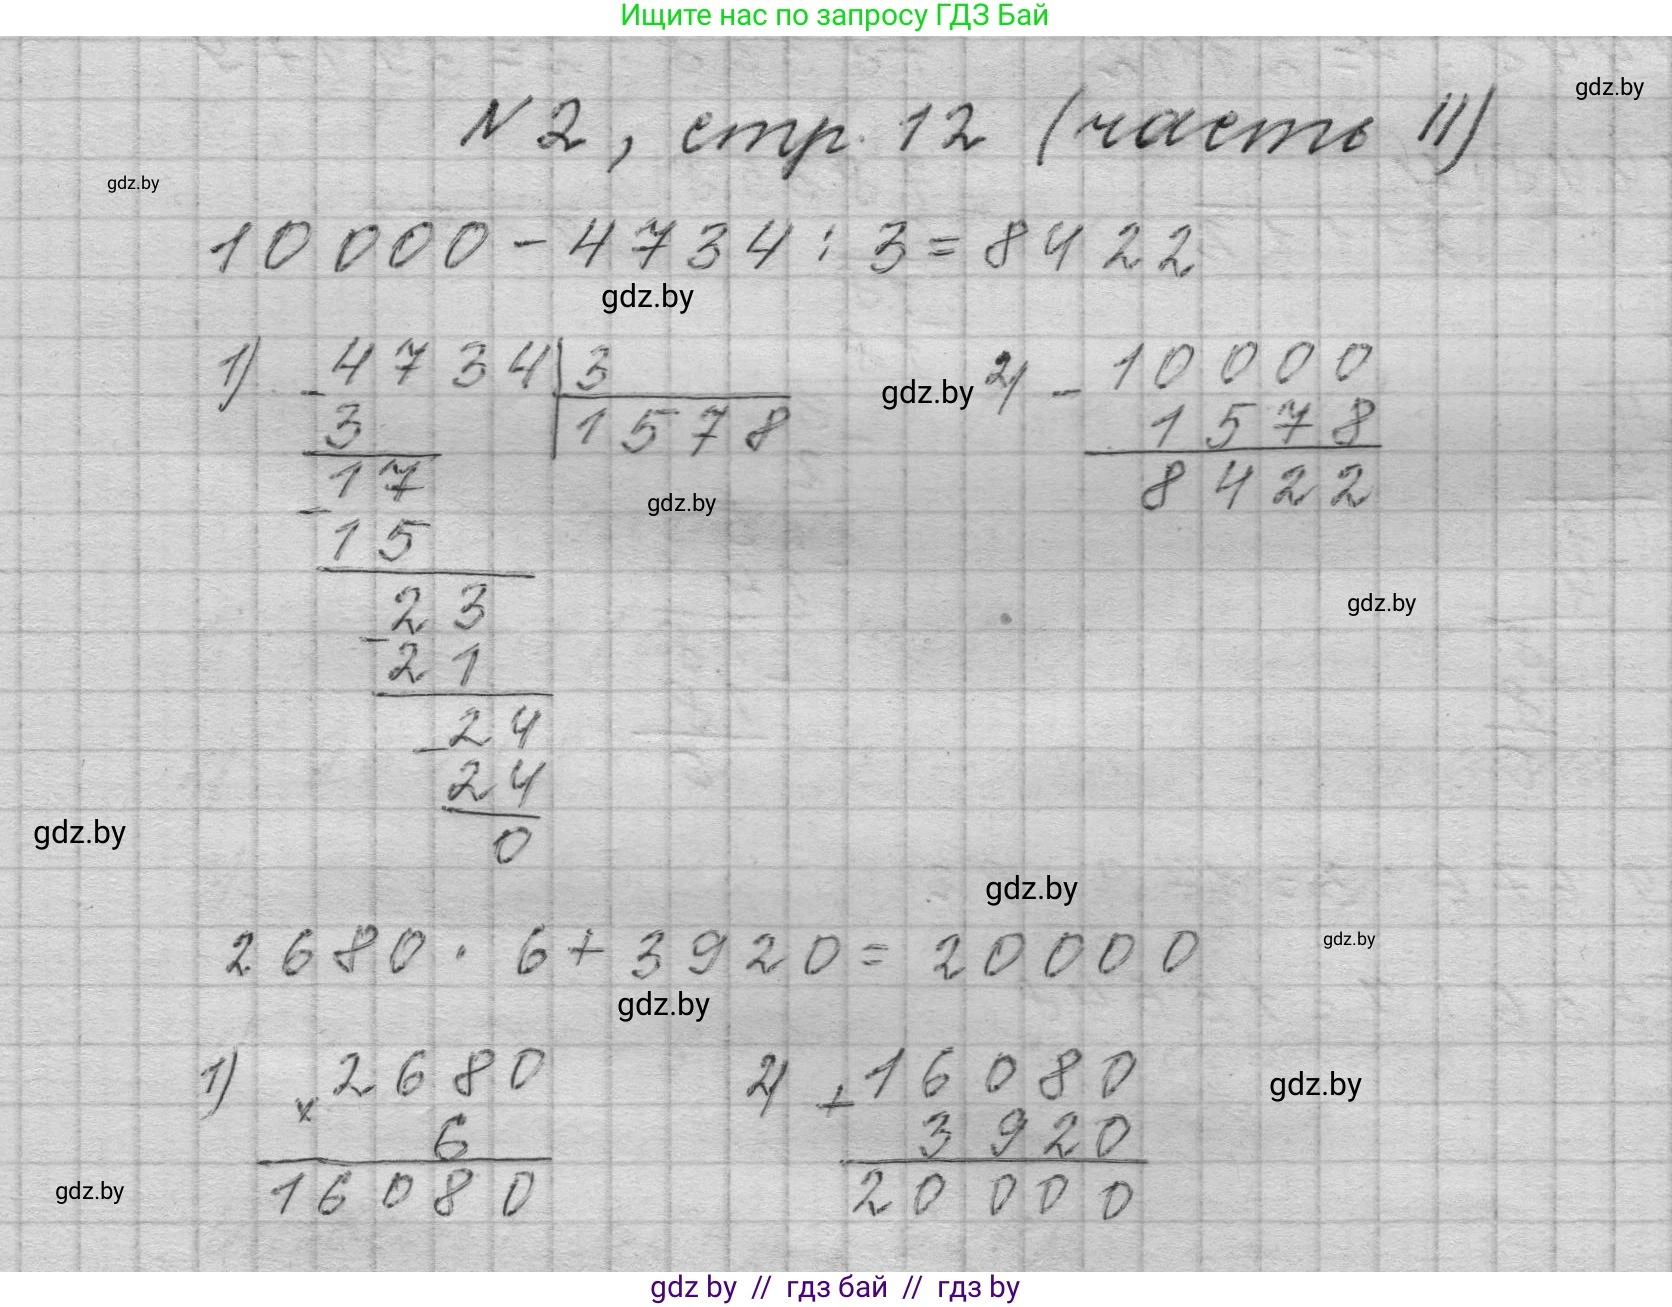 Ищите нас по запросу ГДЗ Бай
gdz.by
N 2, стр. 12 (часть II)
gdz.by
10 000 - 4734 : 3 = 8422
gdz.by
1) - 4734 | 3
3
1578
17
- 15
23
- 21
24
- 24
0
gdz.by
2) - 10000
1578
8422
gdz.by
gdz.by
gdz.by
gdz.by
2680 · 6 + 3920 = 20000
gdz.by
gdz.by
1) × 2680
6
16080
2) + 16080
3920
20 000
gdz.by
gdz.by
gdz by // гдз бай // гдз by